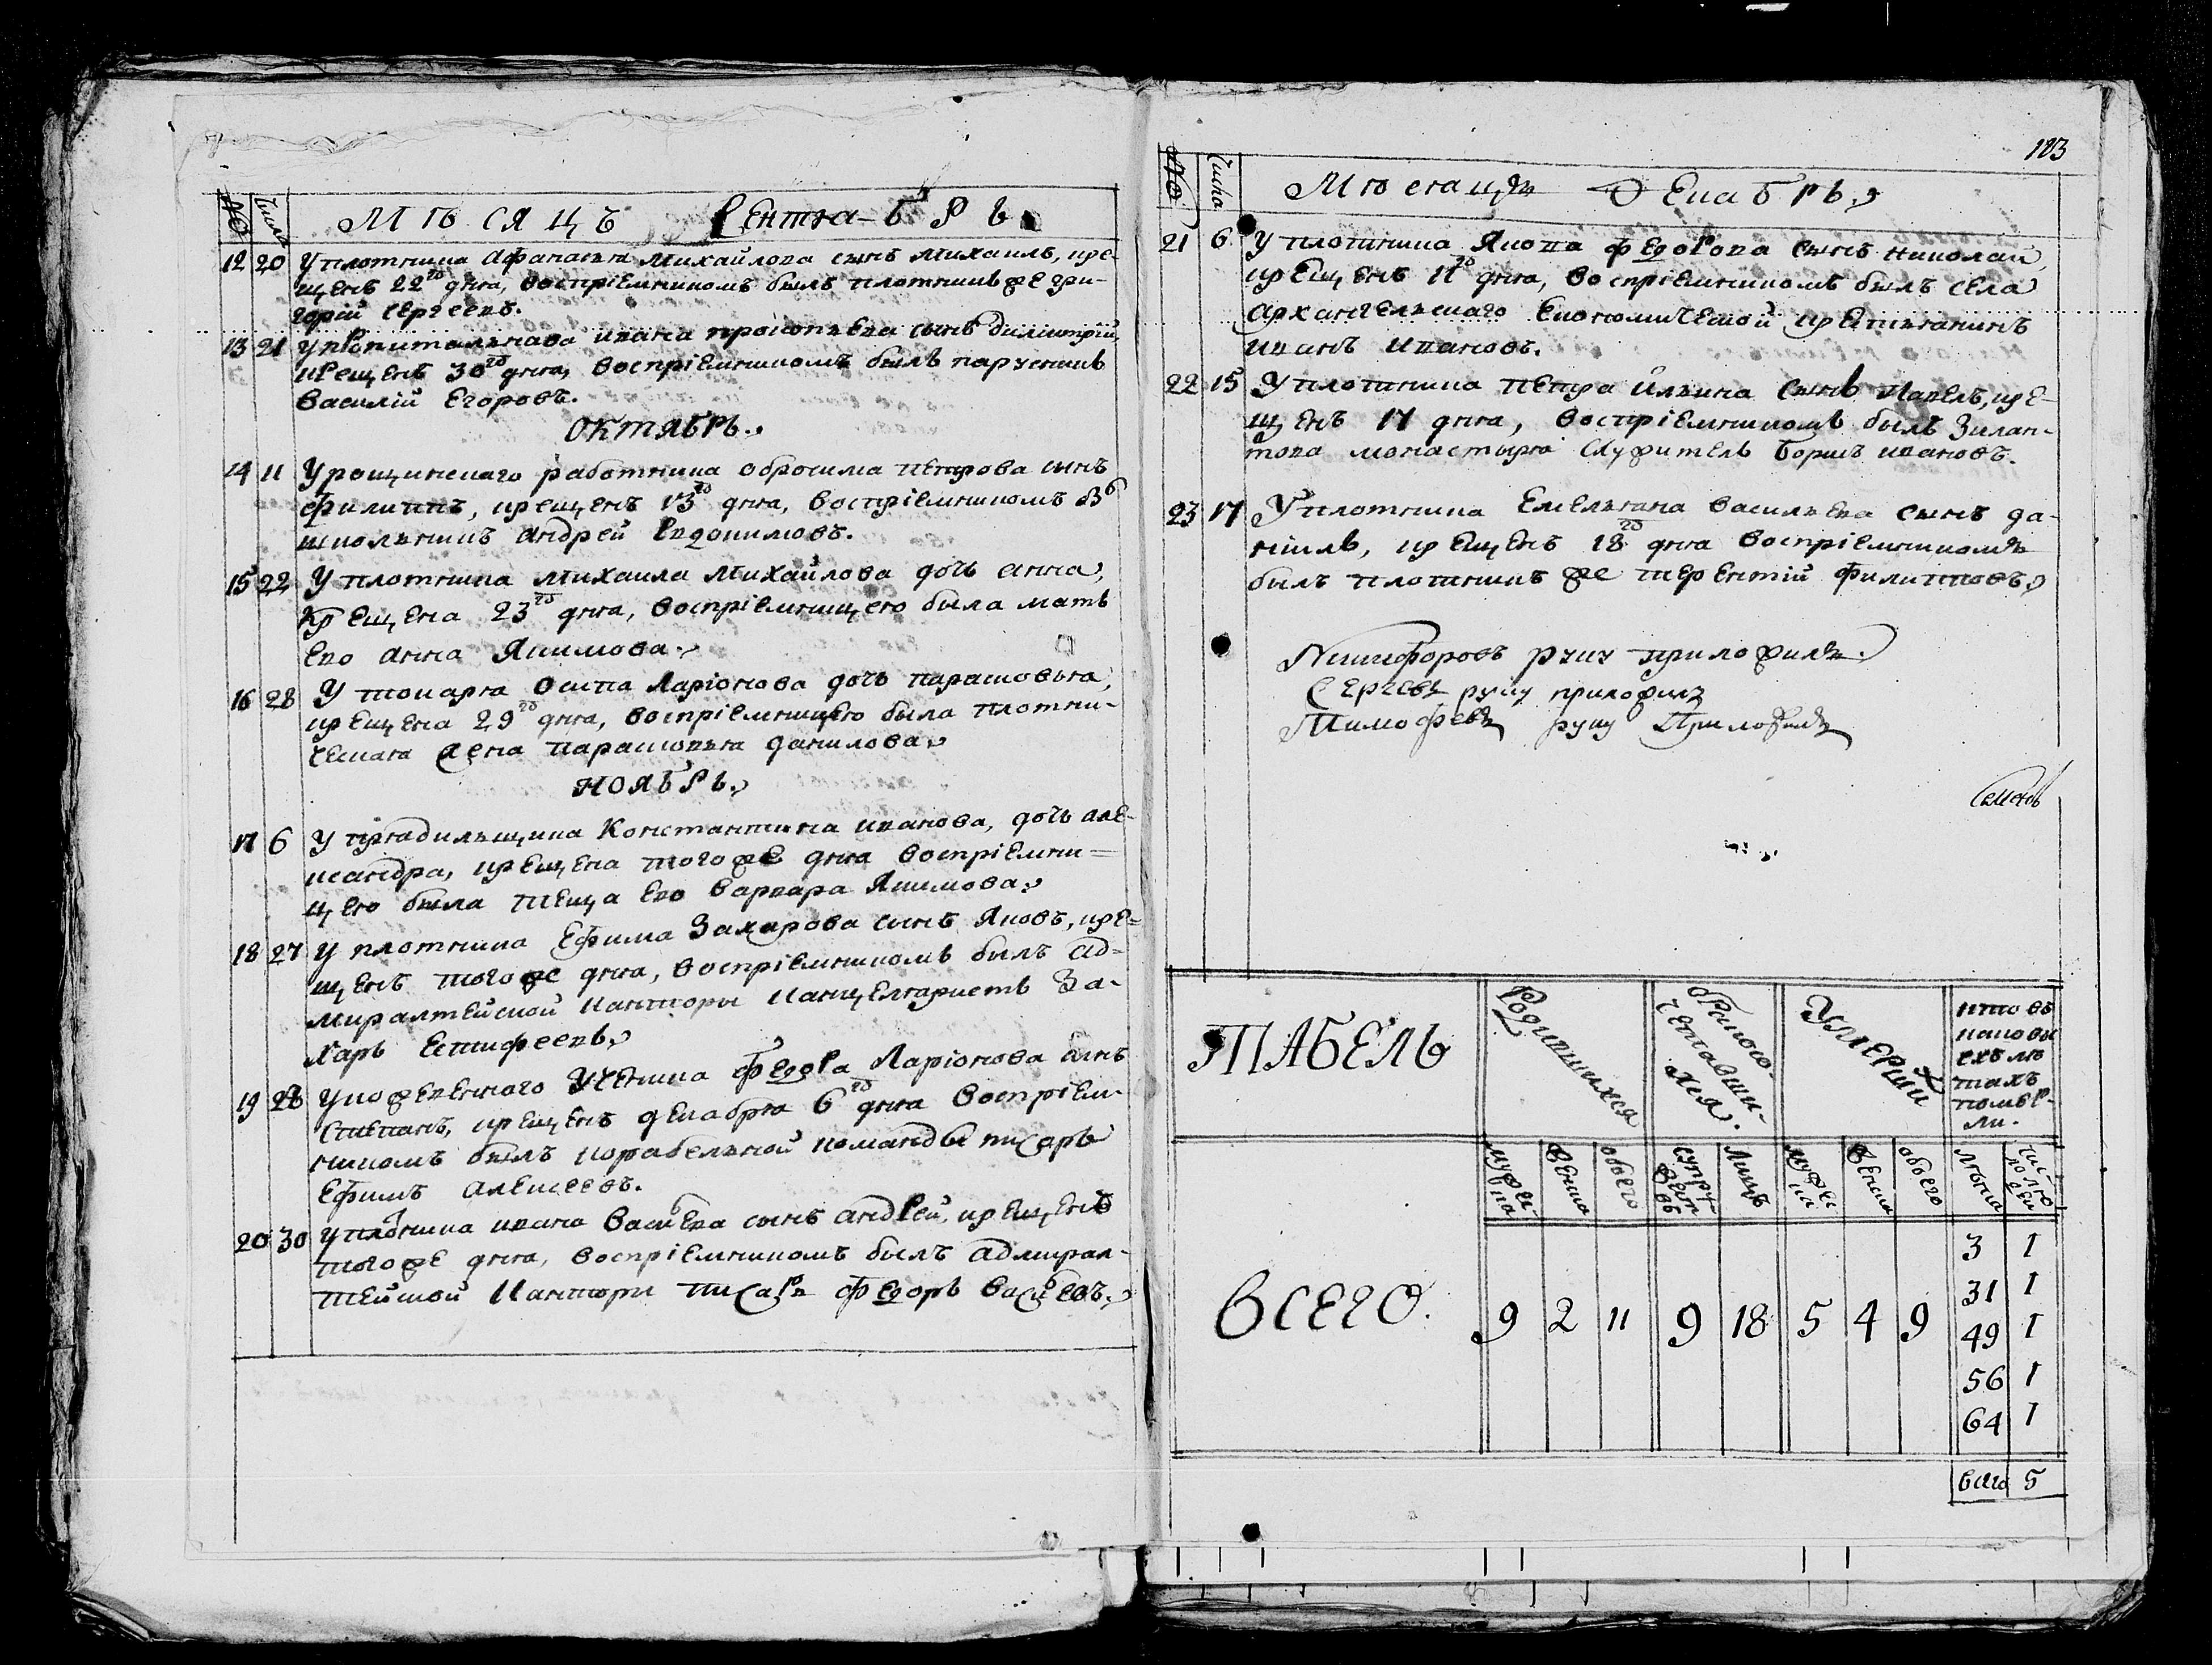 № Число МѢСЯЦЪ СЕНТЯБРЬ
12 20 У плотника Афанасья Михайлова сынъ Михаилъ, кре-
щенъ 22го дня, воспріемникомъ былъ плотникъ же гри-
горій Сергеевъ.
13 21 Ивана Прокопьева сынъ Димитрій,
крещенъ 30го дня, воспріемникомъ былъ парусникъ
Василій Егоровъ.
ОКТЯБРЬ.
14 11 У рощинскаго работника обросима петрова сынъ
филиппъ, крещенъ 13го дня, воспріемникомъ
школьникъ андрей Евдокимовъ.
15 22 У плотника Михаила Михайлова дочь анна,
Крещена 23го дня, воспріемницею была мать
ево анна Якимова.
16 28 У токаря Осипа Ларіонова дочь парасковья,
крещена 29го дня, воспріемницею была плотни-
ческая жена парасковья данилова.
НОЯБРЬ.
17 6 У прядильщика Константина иванова, дочь але-
ксандра, крещена того же дня воспріемни=
цею была теща ево варвара Якимова.
18 27 У плотника Ефима Захарова сынъ Яковъ, кре=
щенъ того же дня, воспріемникомъ былъ ад=
миралтейской канторы канцеляристъ За-
харъ Естифеевъ.
19 28 У Ученика федора Ларіонова сынъ
Степанъ, крещенъ декабря 6го дня воспріем-
никомъ былъ корабельной команды писарь
Ефимъ алексеевъ.
20 30 У плотника ивана Васильева сынъ андрей, крещенъ
того же дня, воспріемникомъ былъ адмирал-
тейской канторы писарь федоръ васильевъ.
183
№ Числа Мѣсяцъ ДЕКАБРЬ
21 6 У плотника Якова федорова сынъ николай,
крещенъ 11го дня, воспріемникомъ былъ села
архангельскаго Економической крестьянинъ
иванъ ивановъ.
22 15 У плотника петра ильина сынъ Павелъ, кре-
щенъ 17 дня, воспріемникомъ былъ Зилан-
това монастыря служитель борисъ ивановъ.
23 17 У плотника Емельяна васильева сынъ да-
ніилъ, крещенъ 18го дня воспріемникомъ
былъ плотникъ же терентій филипповъ.
Никифоровъ руку приложилъ.
Сергеевъ руку приложилъ
Тимофеевъ руку Приложилъ
Семенов
ТАБЕЛЬ Родившихся бракосо-
четавши-
хся. Умерших кто въ
каковы
ехъ лѣ
тахъ
помер-
ли.
мужеска женска обоего супружествъ лицъ мужеска женска обоего лѣта число людей
ВСЕГО. 9 2 11 9 18 5 4 9
3 1
31 1
49 1
56 1
64 1
всего 5